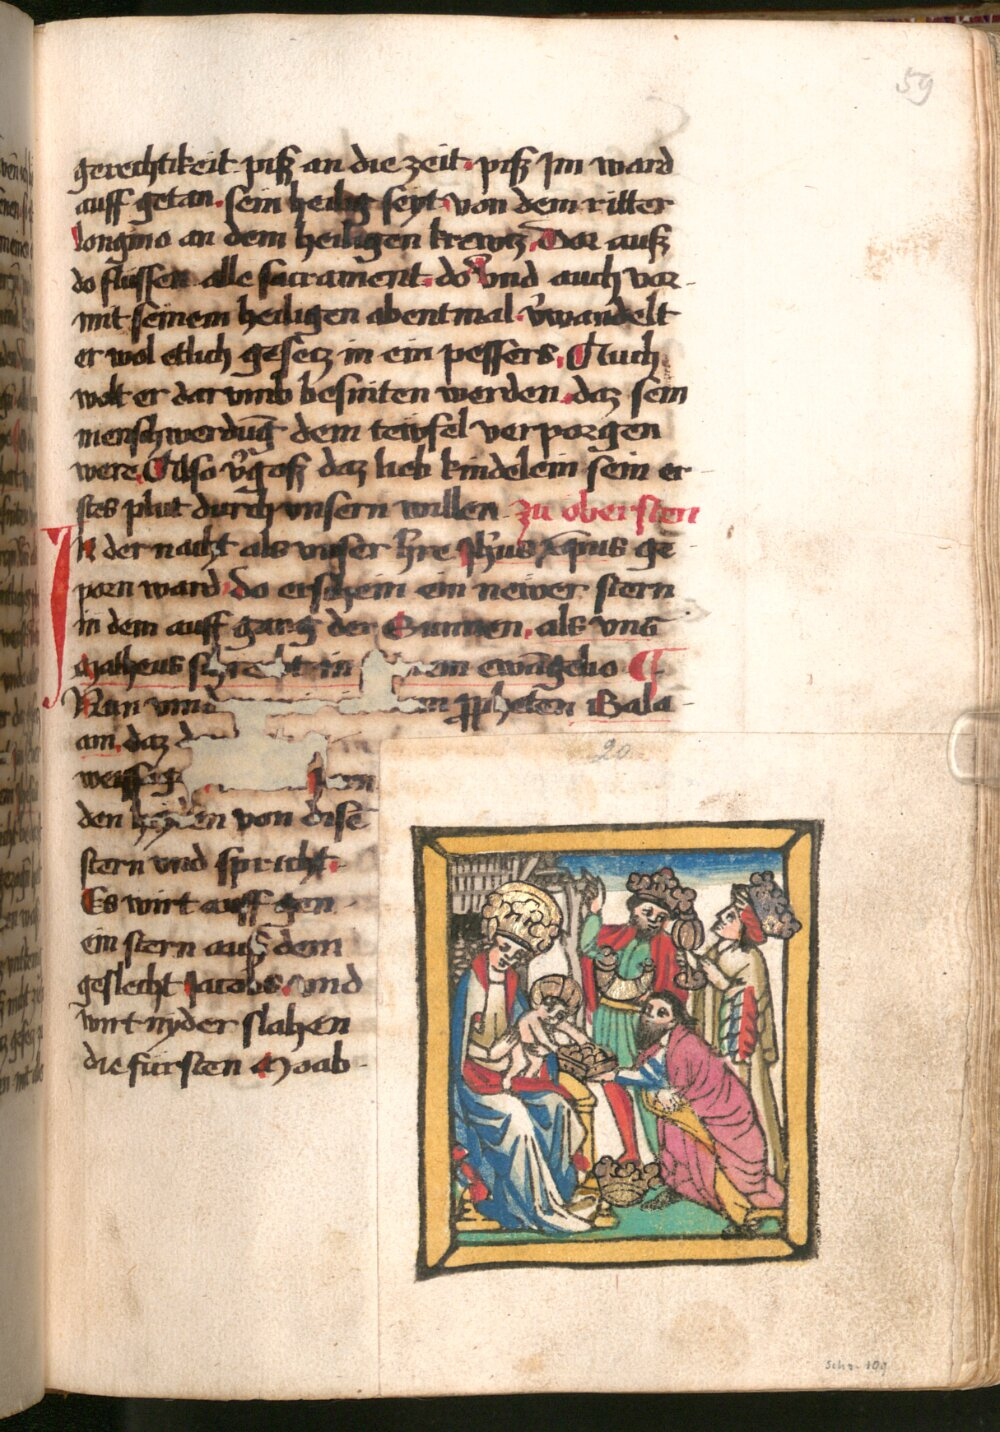 59
gerechtikeit piß an die zeit. piß Jm ward
auff getan. sein heilig seyt. von dem ritter
longino an dem heiligen krewtz. Dor auß
do flussen alle sacrament. do Vnd auch vor
mit seinem heiligen abentmal. v̾wandelt
er wol etlich gesetz in ein pessers. Auch
wolt er dar vmb besniten werden. daz sein
menschwerdung̅ dem tewfel verporgen
were. Also v̾goß daz lieb kindelein sein er
stes plut durch vnsern willen zu obersten
In der nacht als vnser h̅re Jh̅us x̅p̅us ge
porn ward. do erschein ein newer stern
in dem auff gang der Sunnen. als vns
Matheus schreibt in em ewa̅gelio
Nun vnd n p̅pheten Bala
am. daz
weissag
den heyden von dise̅
stern vnd spricht.
Es wirt auff gen
ein stern auß dem
geslecht Jacobs. vnd
wirt nyder slahen
die fursten Moab
20
Schr. 109